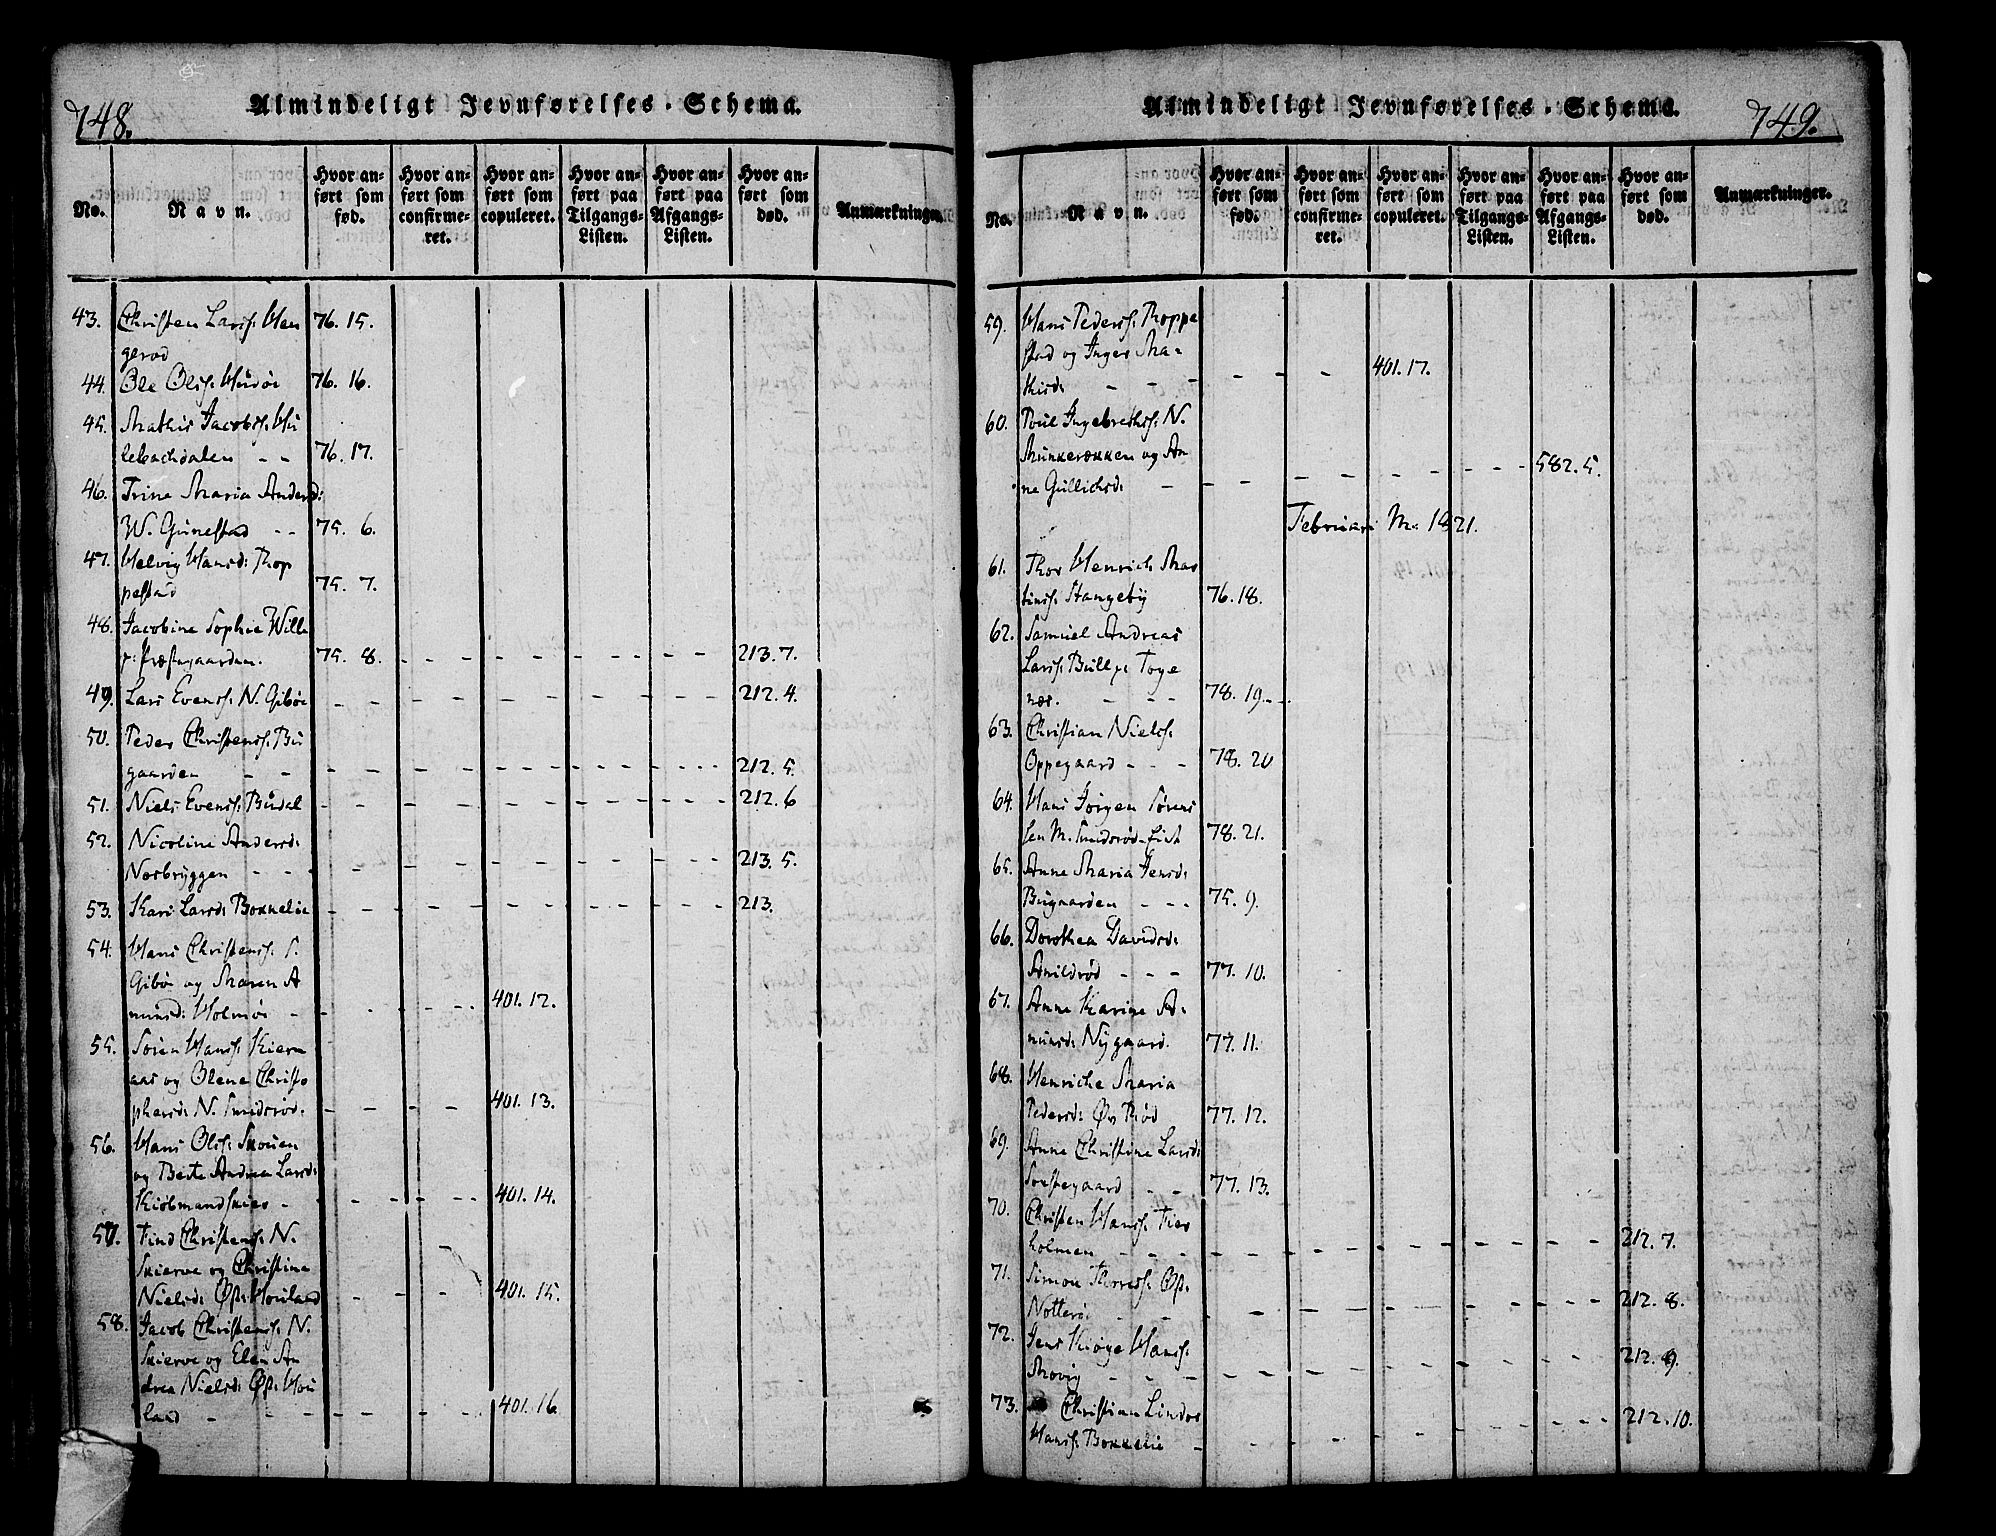 748.
Almindeligt Jevnførelses-Schema.
No.
Navn.
Hvor anført som fød.
Hvor anført som confirmeret.
Hvor anført som copuleret.
Hvor anført paa Tilgangs-Listen.
Hvor anført paa Afgangs-Listen.
Hvor anført som død.
Anmærkninger.
43. Christen Larss: Hen
gerød 76. 15.
44. Ole Olss: Husøe 76. 16.
45. Mathis Jacobss: Hu
lebachdalen - - 76. 17.
46. Trine Maria Andersd:
W. Gunestad - - 75. 6.
47. Helvig Hansd: Thop
pestad 75. 7.
48. Jacobine Sophie Wille
p: Præstegaarden. 75. 8. - - - 213. 7.
49. Lars Evenss: N. Gibøe - - - 212. 4.
50. Peder Christenss: Bu
gaarden - - - 212. 5.
51. Niels Evenss: Budal - - - 212. 6
52. Nicoline Andersd:
Næsbryggen - - - 213. 5.
53. Kari Larsd: Borkelie - - - 213.
54. Hans Christenss: S.
Gibøe og Maren A
mundsd: Holmøe - - - 401. 12.
55. Søren Hanss: Kiern
aas og Olene Christo
phersd: N. Smidsrød. - - - 401. 13.
56. Hans Olss: Skouen
og Berte Andrea Larsd:
Kiøbmandskiær - - - 401. 14.
57. Find Christenss: N.
Skierve og Christine
Nielsd: Øst: Houland - - - 401. 15.
58. Jacob Christenss: N.
Skierve og Elen An
drea Nielsd: Øst: Hou
land - - - 401. 16.
749.
Almindeligt Jevnførelses-Schema.
No.
Navn.
Hvor anført som fød.
Hvor anført som confirmeret.
Hvor anført som copuleret.
Hvor anført paa Tilgangs-Listen.
Hvor anført paa Afgangs-Listen.
Hvor anført som død.
Anmærkninger.
59. Hans Pederss: Thoppe
stad og Inger Ma-
thisd: - - - 401. 17.
60. Poul Ingebrethss: N.
Munkerækken og An
ne Gullichsd: - - - 582. 5.
Februari M: 1821.
61. Thor Henrich Mar
tinss: Stangeby 76. 18.
62. Samuel Andreas
Larss: Bull p: Toge
næs. - - - 78. 19.
63. Christian Nielss:
Oppegaard - - - 78. 20
64. Hans Jørgen Søren
sen M. Smidsrød-Eie 78. 21.
65. Anne Maria Jensd:
Bugaarden - - - 75. 9.
66. Dorothea Davidsd:
Smidsrød - - - 77. 10.
67. Anne Karine A-
mundsd: Nygaard. 77. 11.
68. Henriche Maria
Pedersd: Øv. Rød 77. 12.
69. Anne Christine Larsd:
Tostegaard - - 77. 13.
70. Christen Hanss: Fier
holmen - - - 212. 7.
71. Simon Thoress: Øst.
Nøtterø. - - - 212. 8.
72. Jens Kiøge Hanss:
Skovig - - - 212. 9.
73. Christian Lindos
Hanss: Borkelie - - - 212. 10.